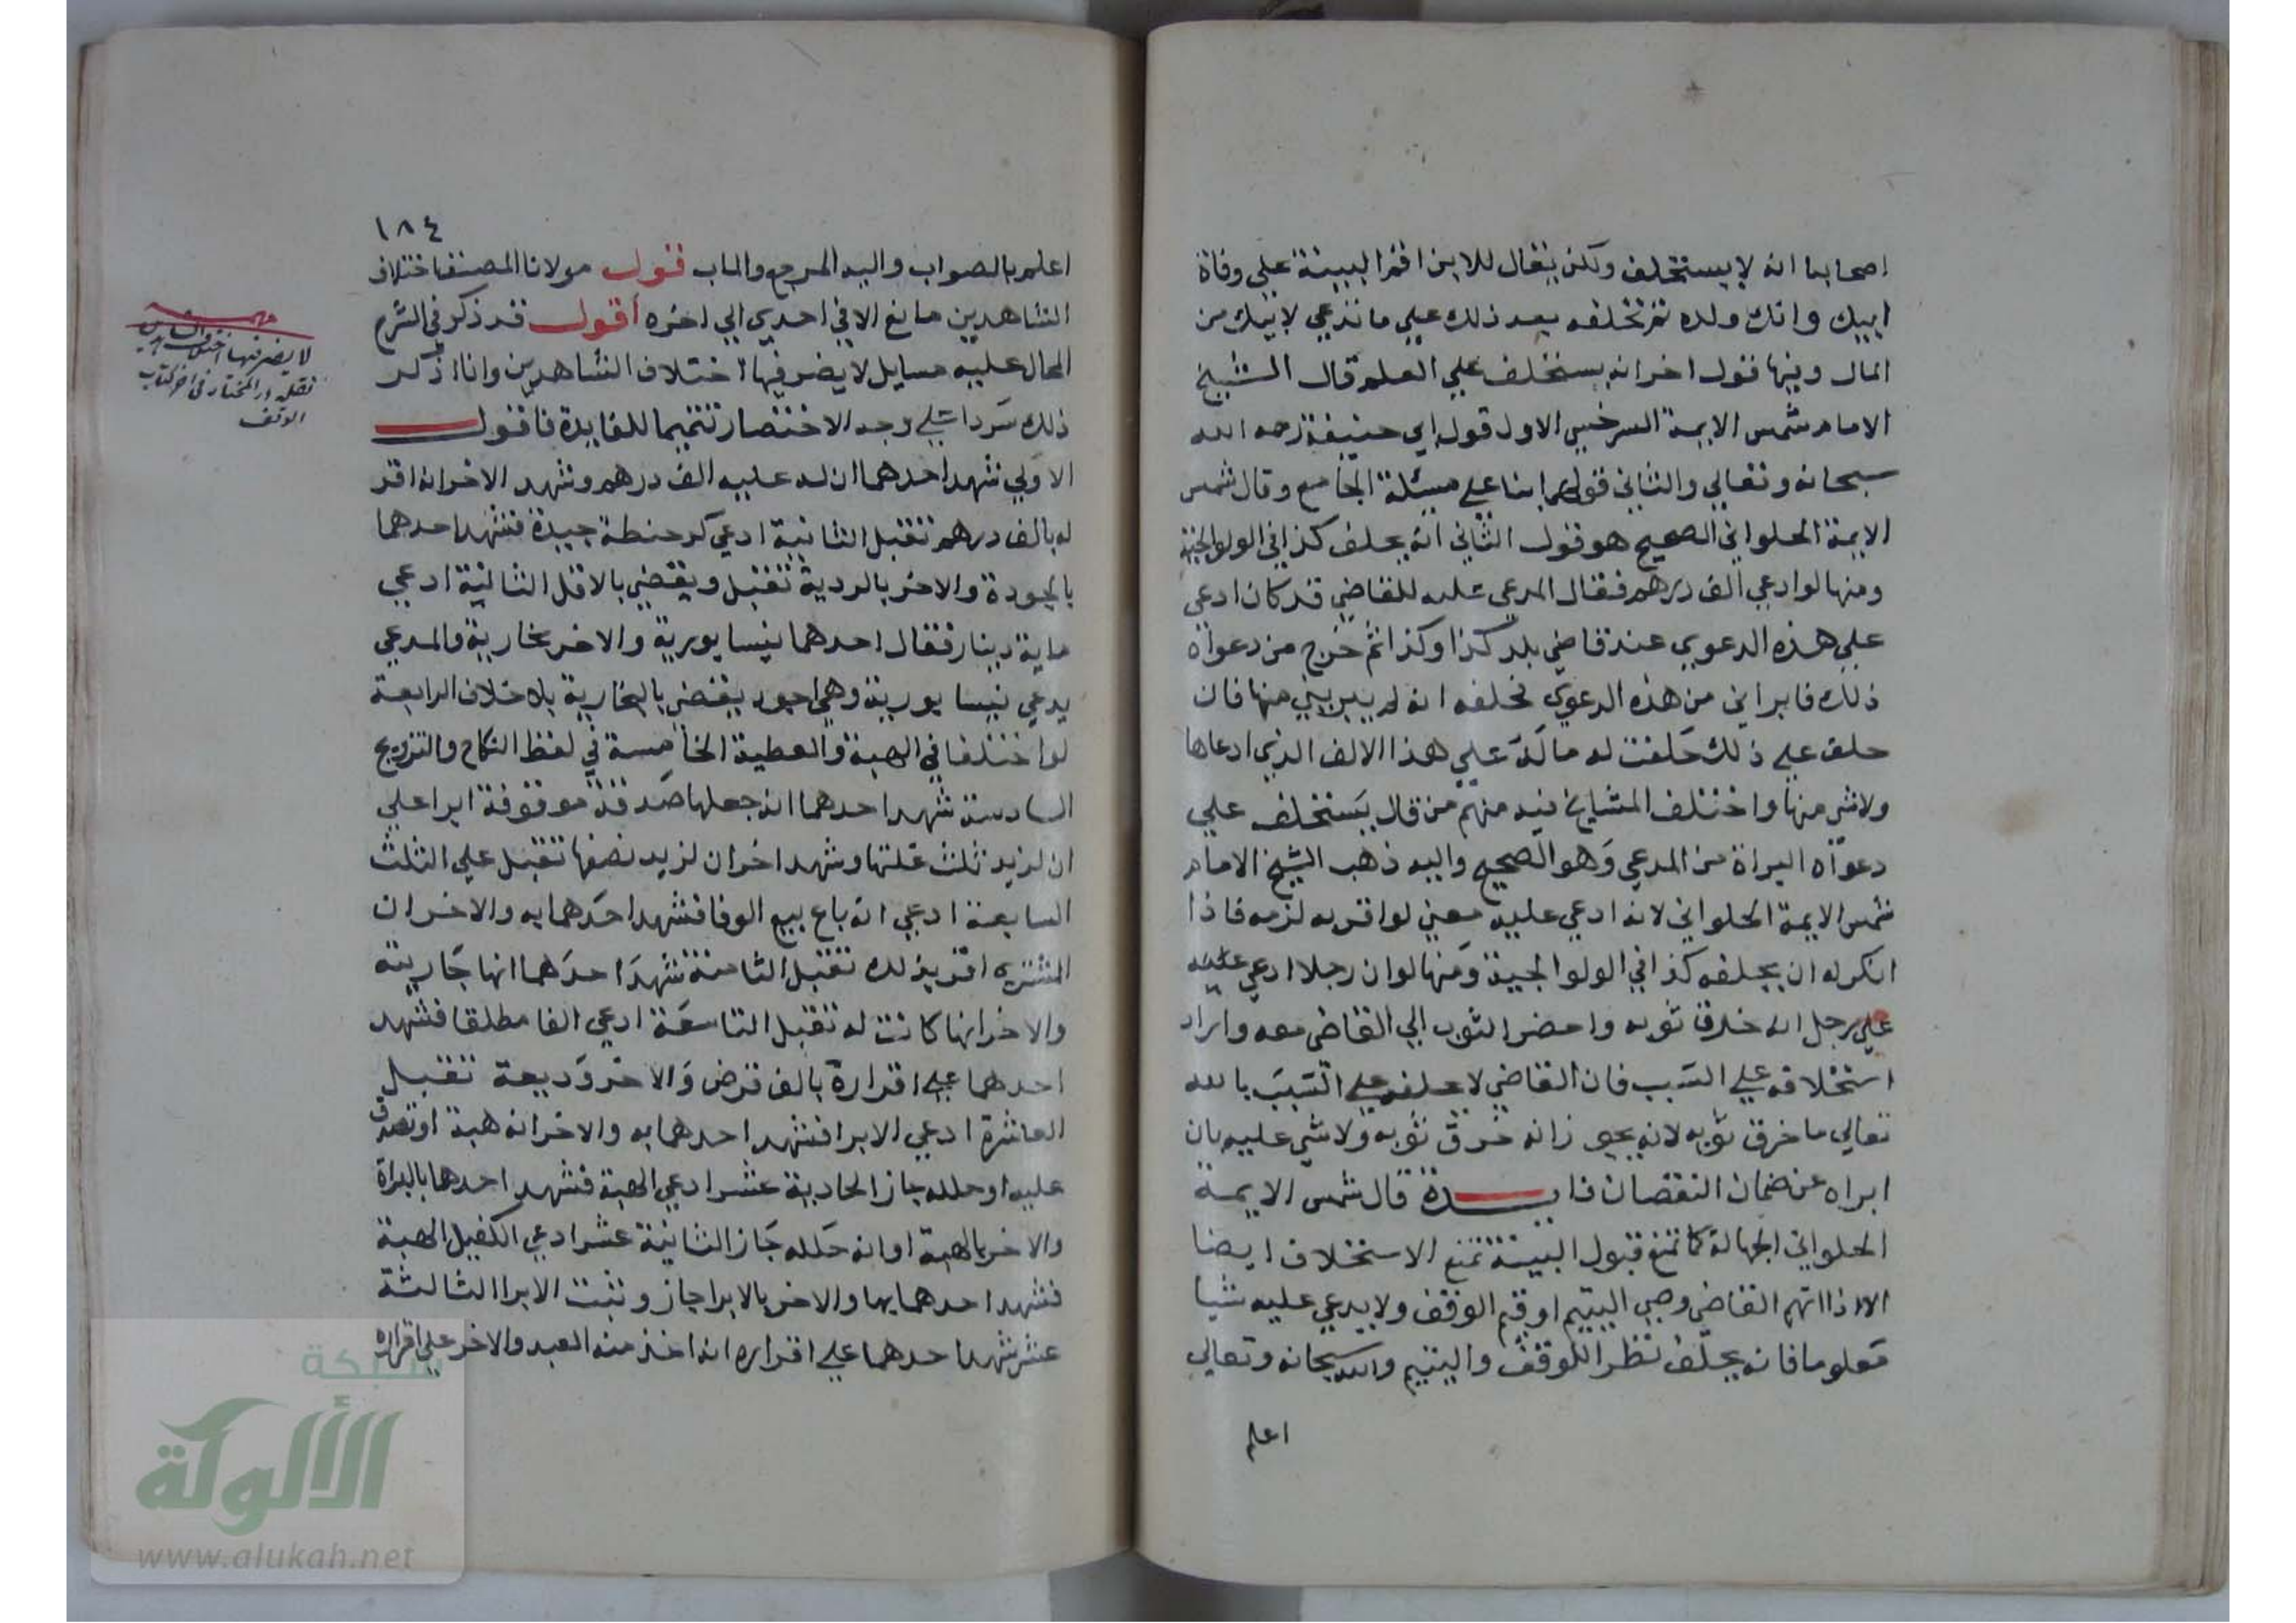 اصحابنا انه لا يستحلف ولكن يقال للابن اقم البينة علي وفاة
ابيك وانك ولده ثم تحلفه بعد ذلك علي ما تدعي لابيك من
المال وفيها قول اخر انه يستحلف علي العلم قال الشيخ
الامام شمس الايمة السرخسي الاول قول ابي حنيفة رحمه الله
سبحانه وتعالي والثاني قولهما بنا علي مسئلة الجامع وقال شمس
الايمة الحلواني الصحيح هو قول الثاني انه يحلف كذا في الولوالجية
ومنها لو ادعي الف درهم فقال المدعي عليه للقاضي قد كان ادعي
علي هذه الدعوي عند قاضي بلد كذا وكذا ثم خرج من دعواه
ذلك فابراني من هذه الدعوي فحلفه انه لم يبريني منها فان
حلف علي ذلك حلفت له ماله علي هذا الالف الذي ادعاها
ولا شي منها واختلف المشايخ فيه منهم من قال يستحلف علي
دعواه البراة من المدعي وهو الصحيح واليه ذهب الشيخ الامام
شمس الايمة الحلواني لانه ادعي عليه معني لو اقر به لزمه فاذا
انكر له ان يحلفه كذا في الولوالجية ومنها لو ان رجلا ادعي عليه
علي رجل انه خرق ثوبه واحضر الثوب الي القاضي معه واراد
استحلافه علي السبب فان القاضي لا يحلفه علي السبب بالله
تعالي ما خرق ثوبه لانه يجوز انه خرق ثوبه ولا شي عليه بان
ابراه عن ضمان النقصان فايدة قال شمس الايمة
الحلواني الجهالة كما تمنع قبول البينة تمنع الاستحلاف ايضا
الا اذا اتهم القاضي وصي اليتيم او قيم الوقف ولا يدعي عليه شيا
معلوما فانه يحلف نظرا للوقف واليتيم والله سبحانه وتعالي
اعلم
١٨٤
اعلم بالصواب واليه المرجع والماب قول مولانا المصنف اختلاف
الشاهدين مانع الا في احدي الي اخره اقول قد ذكر في الشرح
المحال عليه مسايل لا يضر فيها اختلاف الشاهدين وانا اذكر
ذلك سردا علي وجه الاختصار تتميما للفايدة فاقول
الاولي شهد احدهما ان له عليه الف درهم وشهد الاخر انه اقر
له بالف درهم تقبل الثانية ادعي كر حنطة جيدة فشهد احدهما
بالجودة والاخر بالردية تقبل ويقضي بالاقل الثالثة ادعي
ماية دينار فقال احدهما نيسابورية والاخر بخارية والمدعي
يدعي نيسابورية وهي اجود يقضي بالبخارية بلا خلاف الرابعة
لو اختلفا في الهبة والعطية الخامسة في لفظ النكاح والتزويج
السادسة شهد احدهما انه جعلها صدقة موقوفة ابدا علي
ان لزيد ثلث غلتها وشهد اخر ان لزيد نصفها تقبل علي الثلث
السابعة ادعي انه باع بيع الوفا فشهد احدهما به والاخر ان
المشتري اقر بذلك تقبل الثامنة شهد احدهما انها جاريته
والاخر انها كانت له تقبل التاسعة ادعي الفا مطلقا فشهد
احدهما علي اقراره بالف قرض والاخر وديعة تقبل
العاشرة ادعي الابرا فشهد احدهما به والاخر انه هبة او تصدق
عليه او حلله جاز الحادية عشر ادعي الهبة فشهد احدهما بالبراة
والاخر بالهبة او انه حلله جاز الثانية عشر ادعي الكفيل الهبة
فشهد احدهما بها والاخر بالابرا جاز وثبت الابرا الثالثة
عشر شهد احدهما علي اقراره انه اخذ منه العبد والاخر علي اقراره
لا يضر فيها اختلاف الشاهدين
نقله در المختار في اخر كتاب
الوقف
شبكة
الألوكة
www.alukah.net